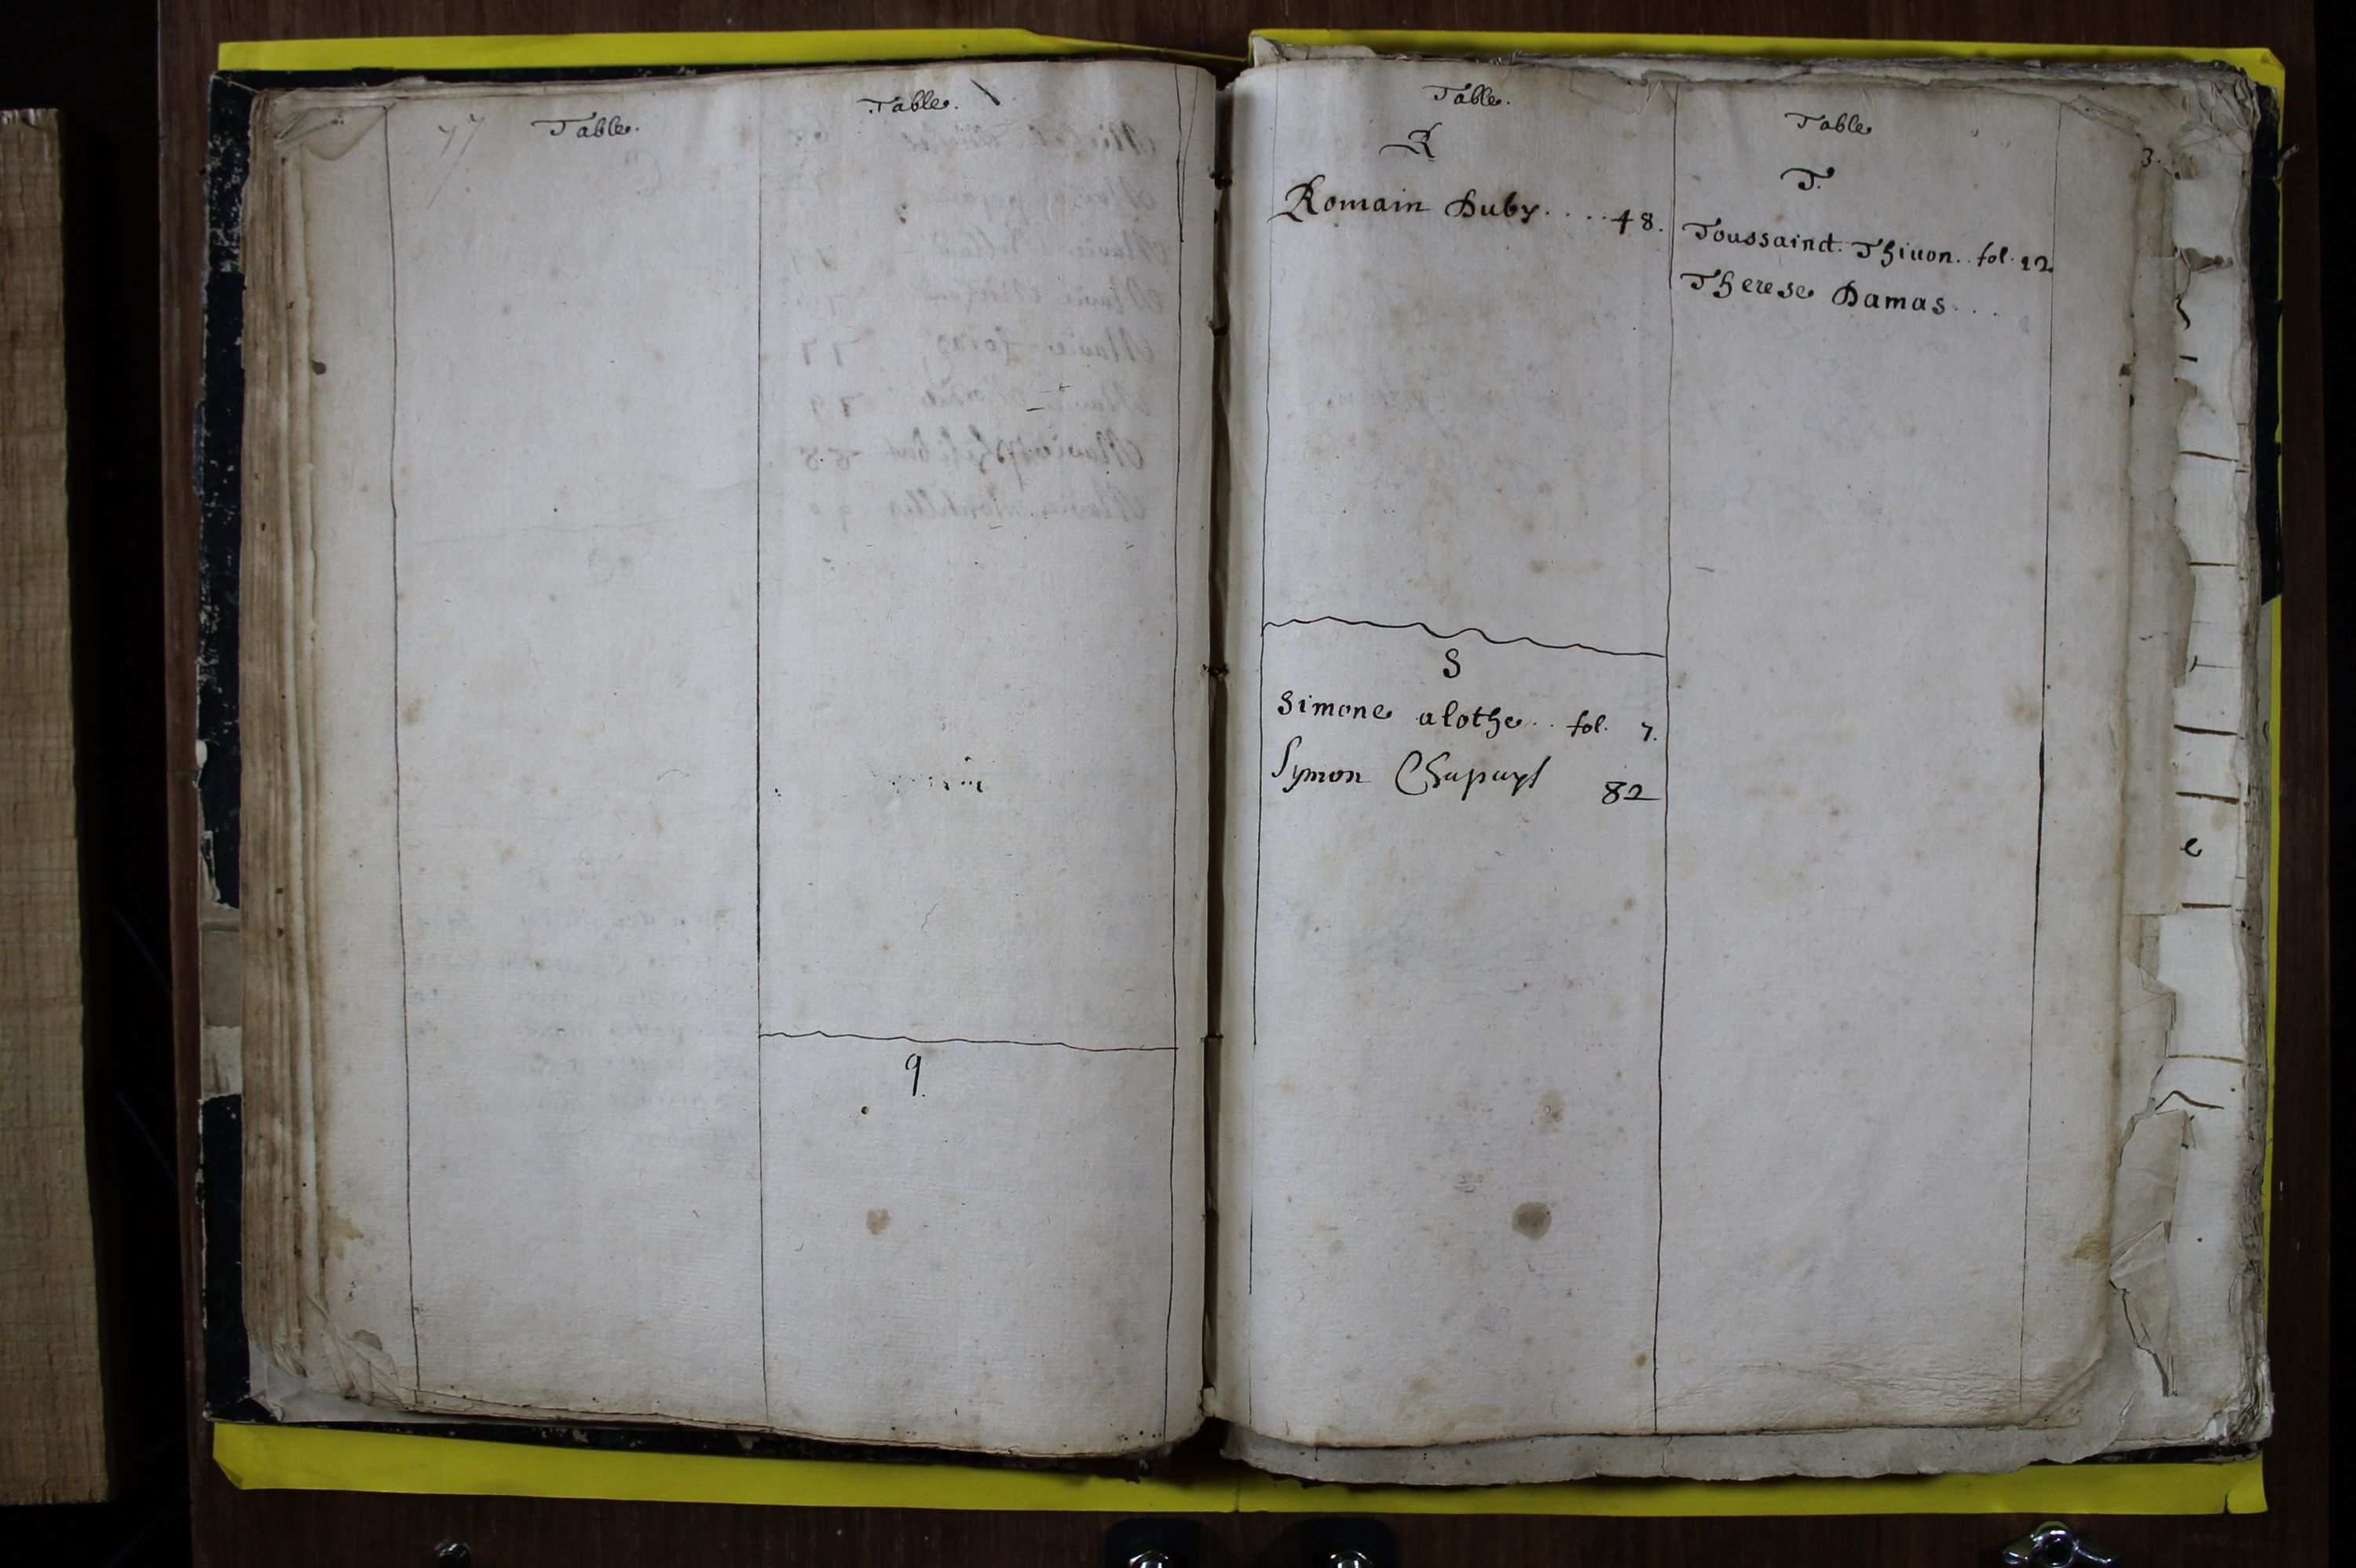 Table.
Table.
q
Table.
R
Romain Duby . . . . 48.
S
Simone alothe . . fol. 7.
Symon Chapuys 82
Table
T.
Toussainct. Thiuon. . fol. 12.
Therese Damas . . .
3.
e